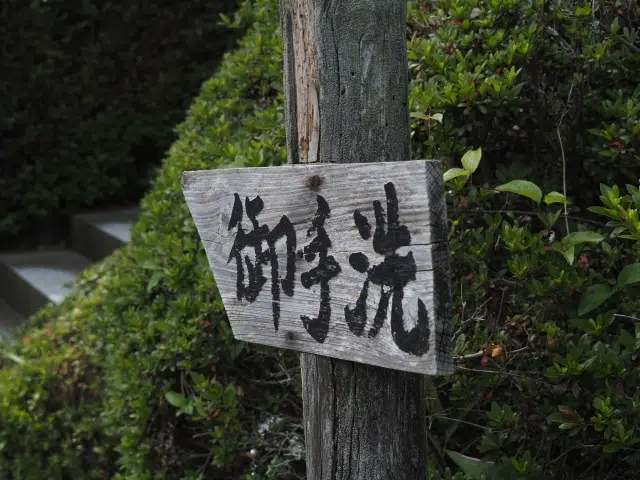 御手洗